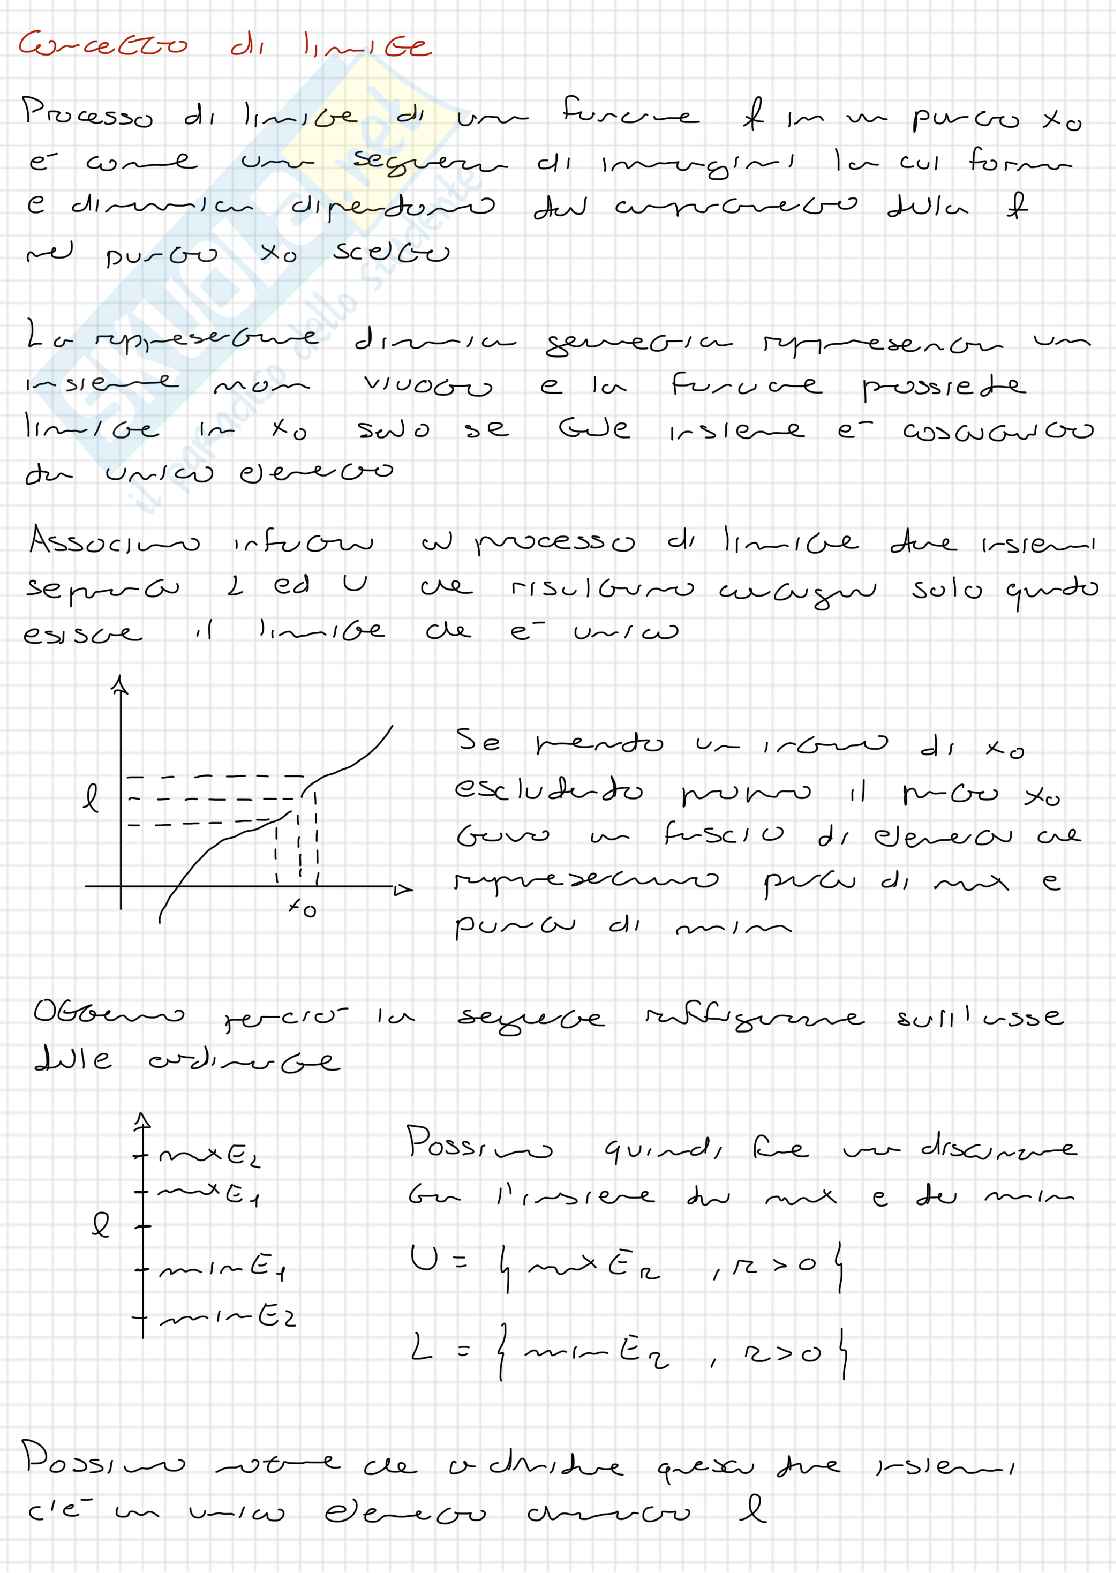 Concetto di limite
Processo di limite di una funzione f in un punto x0
e' come una sequenza di immagini la cui forma
e dinamica dipendono dal comportamento della f
nel punto x0 scelto
La rappresentazione dinamica geometrica rappresenta un
insieme non vuoto e la funzione possiede
limite in x0 solo se tale insieme e' costituito
da unico elemento
Associamo infatti al processo di limite due insiemi
separati L ed U che risultano contigui solo quando
esiste il limite che e' unico
l
x0
Se prendo un intorno di x0
escludendo proprio il punto x0
trovo un fascio di elementi che
rappresentano punti di max e
punti di min
Otteniamo percio' la seguente raffigurazione sull'asse
delle ordinate
max E2
max E1
l
min E1
min E2
Possiamo quindi fare una distinzione
tra l'insieme dei max e dei min
U = { max Er , r > 0 }
L = { min Er , r > 0 }
Possiamo notare che a dividere questi due insiemi
c'e' un unico elemento chiamato l
SKUOLA.net
il paradiso dello studente